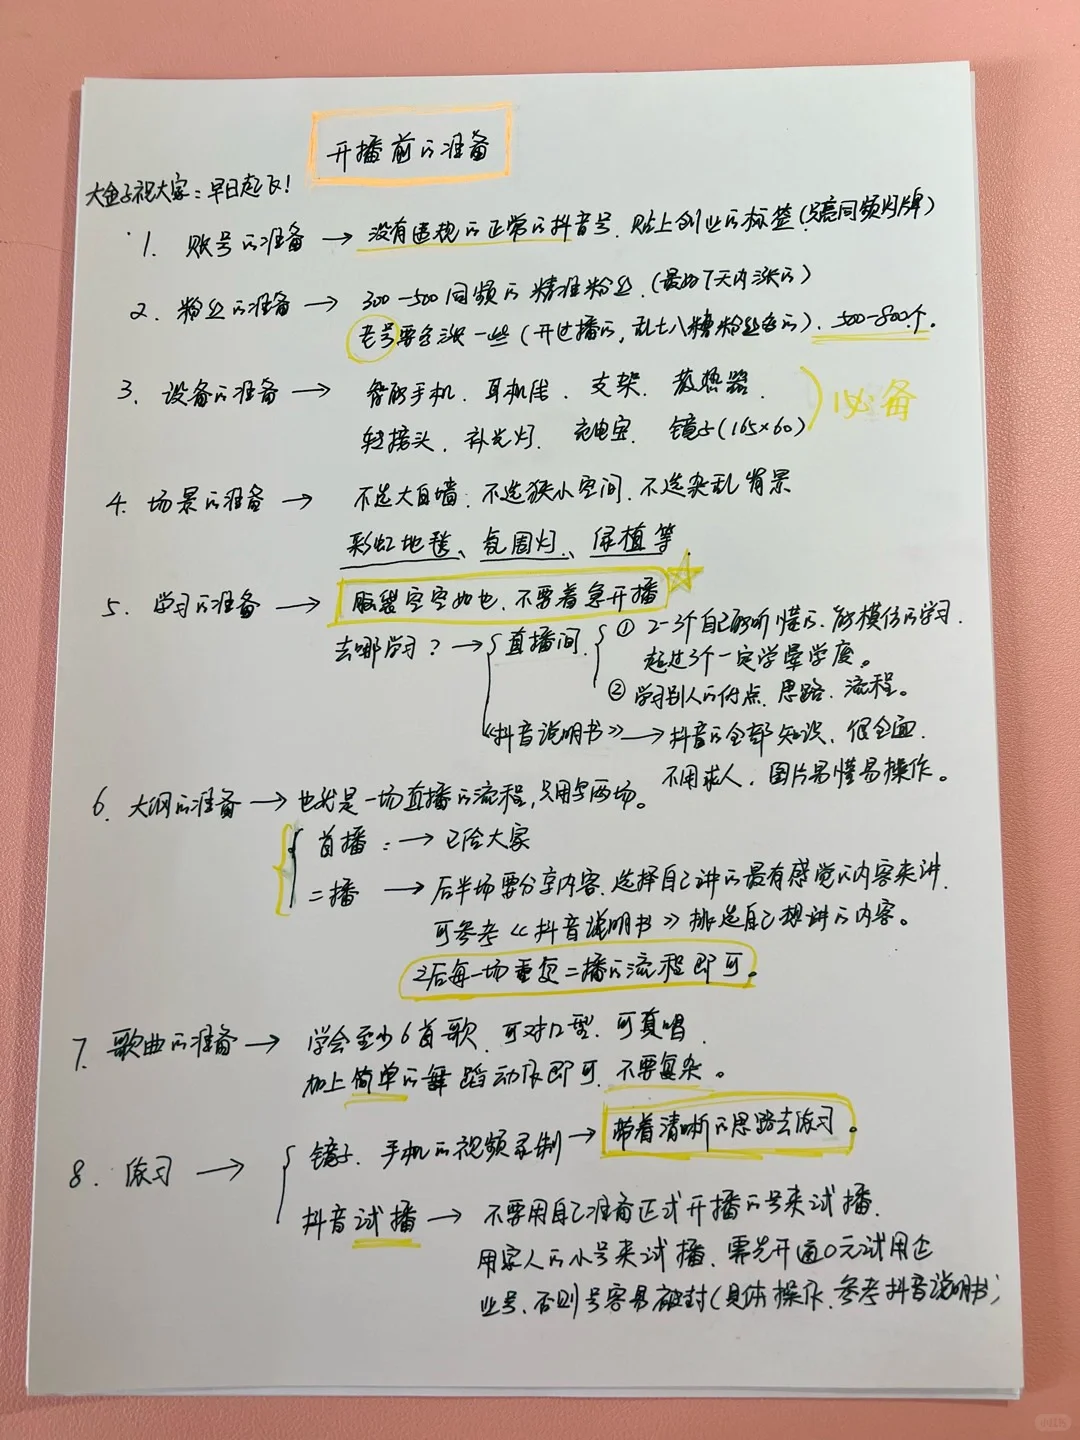 开播前的准备
大金子祝大家：早日起飞！
1. 账号的准备 → 没有违规的正常的抖音号、贴上创业的标签（点亮同频灯牌）
2. 粉丝的准备 → 300-500同频的精准粉丝.（最好7天内涨的）
老号要多涨一些（开过播的，乱七八糟粉丝多的）、500-800个.
3. 设备的准备 → 智能手机、耳机线、支架、散热器、
转接头、补光灯、充电宝、镜子(165×60)
必备
4. 场景的准备 → 不选大白墙、不选狭小空间、不选杂乱背景
彩虹地毯、氛围灯、绿植等
5. 学习的准备 → 脑袋空空如也、不要着急开播
去哪学习？→ 直播间 ① 2-3个自己能听懂的、能模仿的学习.
超过3个一定学晕学废。
② 学习别人的付点、思路、流程。
《抖音说明书》→ 抖音的全部知识、很全面.
不用求人，图片易懂易操作。
6. 大纲的准备 → 也就是一场直播的流程，只用写两场。
首播：→ 已给大家
二播 → 后半场要分享内容、选择自己讲的最有感觉的内容来讲.
可参考《抖音说明书》挑选自己想讲的内容。
之后每一场重复二播的流程即可。
7. 歌曲的准备 → 学会至少6首歌、可对口型、可真唱
加上简单的舞蹈动作即可、不要复杂。
8. 练习 → 镜子、手机的视频录制 → 带着清晰的思路去练习。
抖音试播 → 不要用自己准备正式开播的号来试播、
用家人的小号来试播、需先开通0元试用企
业号、否则号容易被封（具体操作、参考抖音说明书）
小红书